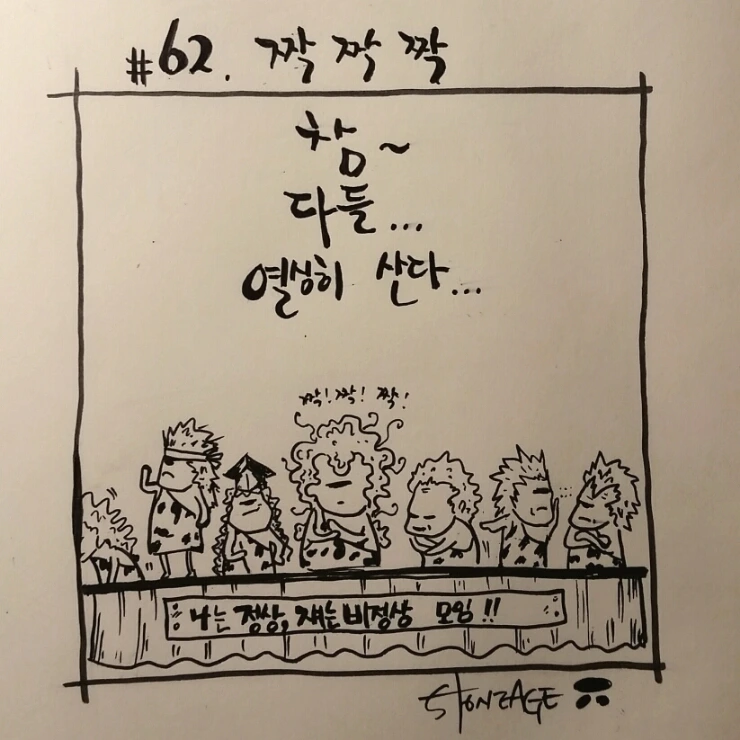 #62. 짝 짝 짝
참~
다들...
열심히 산다...
짝! 짝! 짝!
나는 정상, 쟤는 비정상 모임!!
STONEAGE